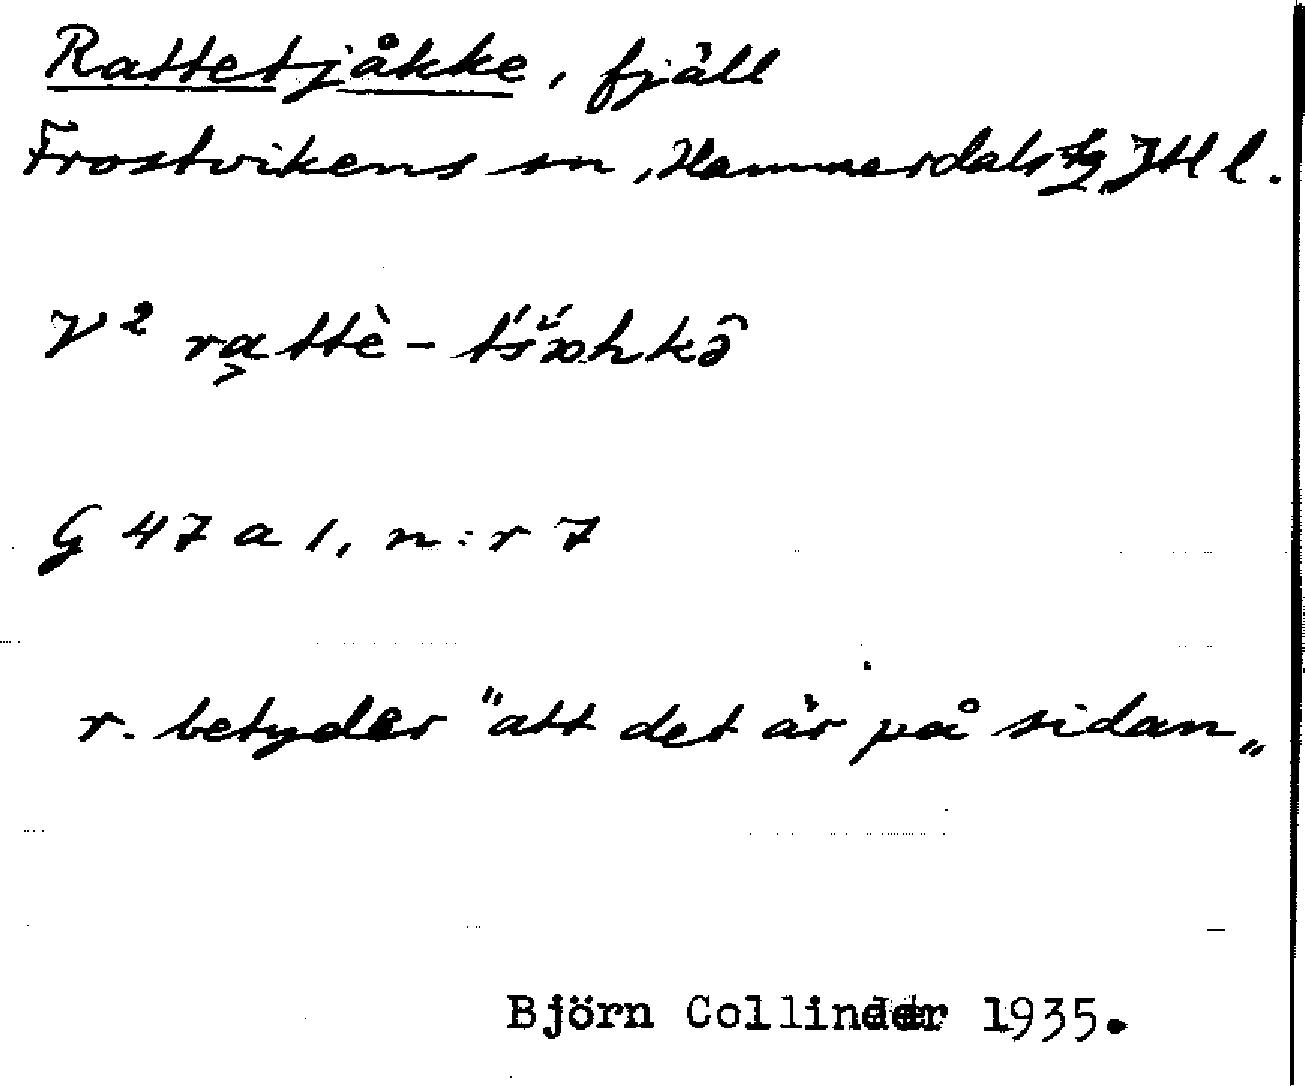 Rattetjåkke, fjäll
Frostvikens sn, Hammerdals tg, JH l.
V² rα̬ttè-
G 47 a 1, n:r 7
r. betyder "att det är på sidan"
Björn Collinder 1935.